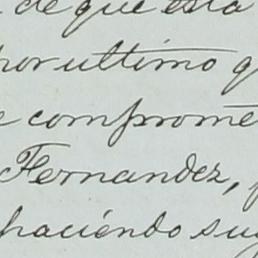 de que esta
por ultimo q
e compromé
Fernandez,
haciendo su